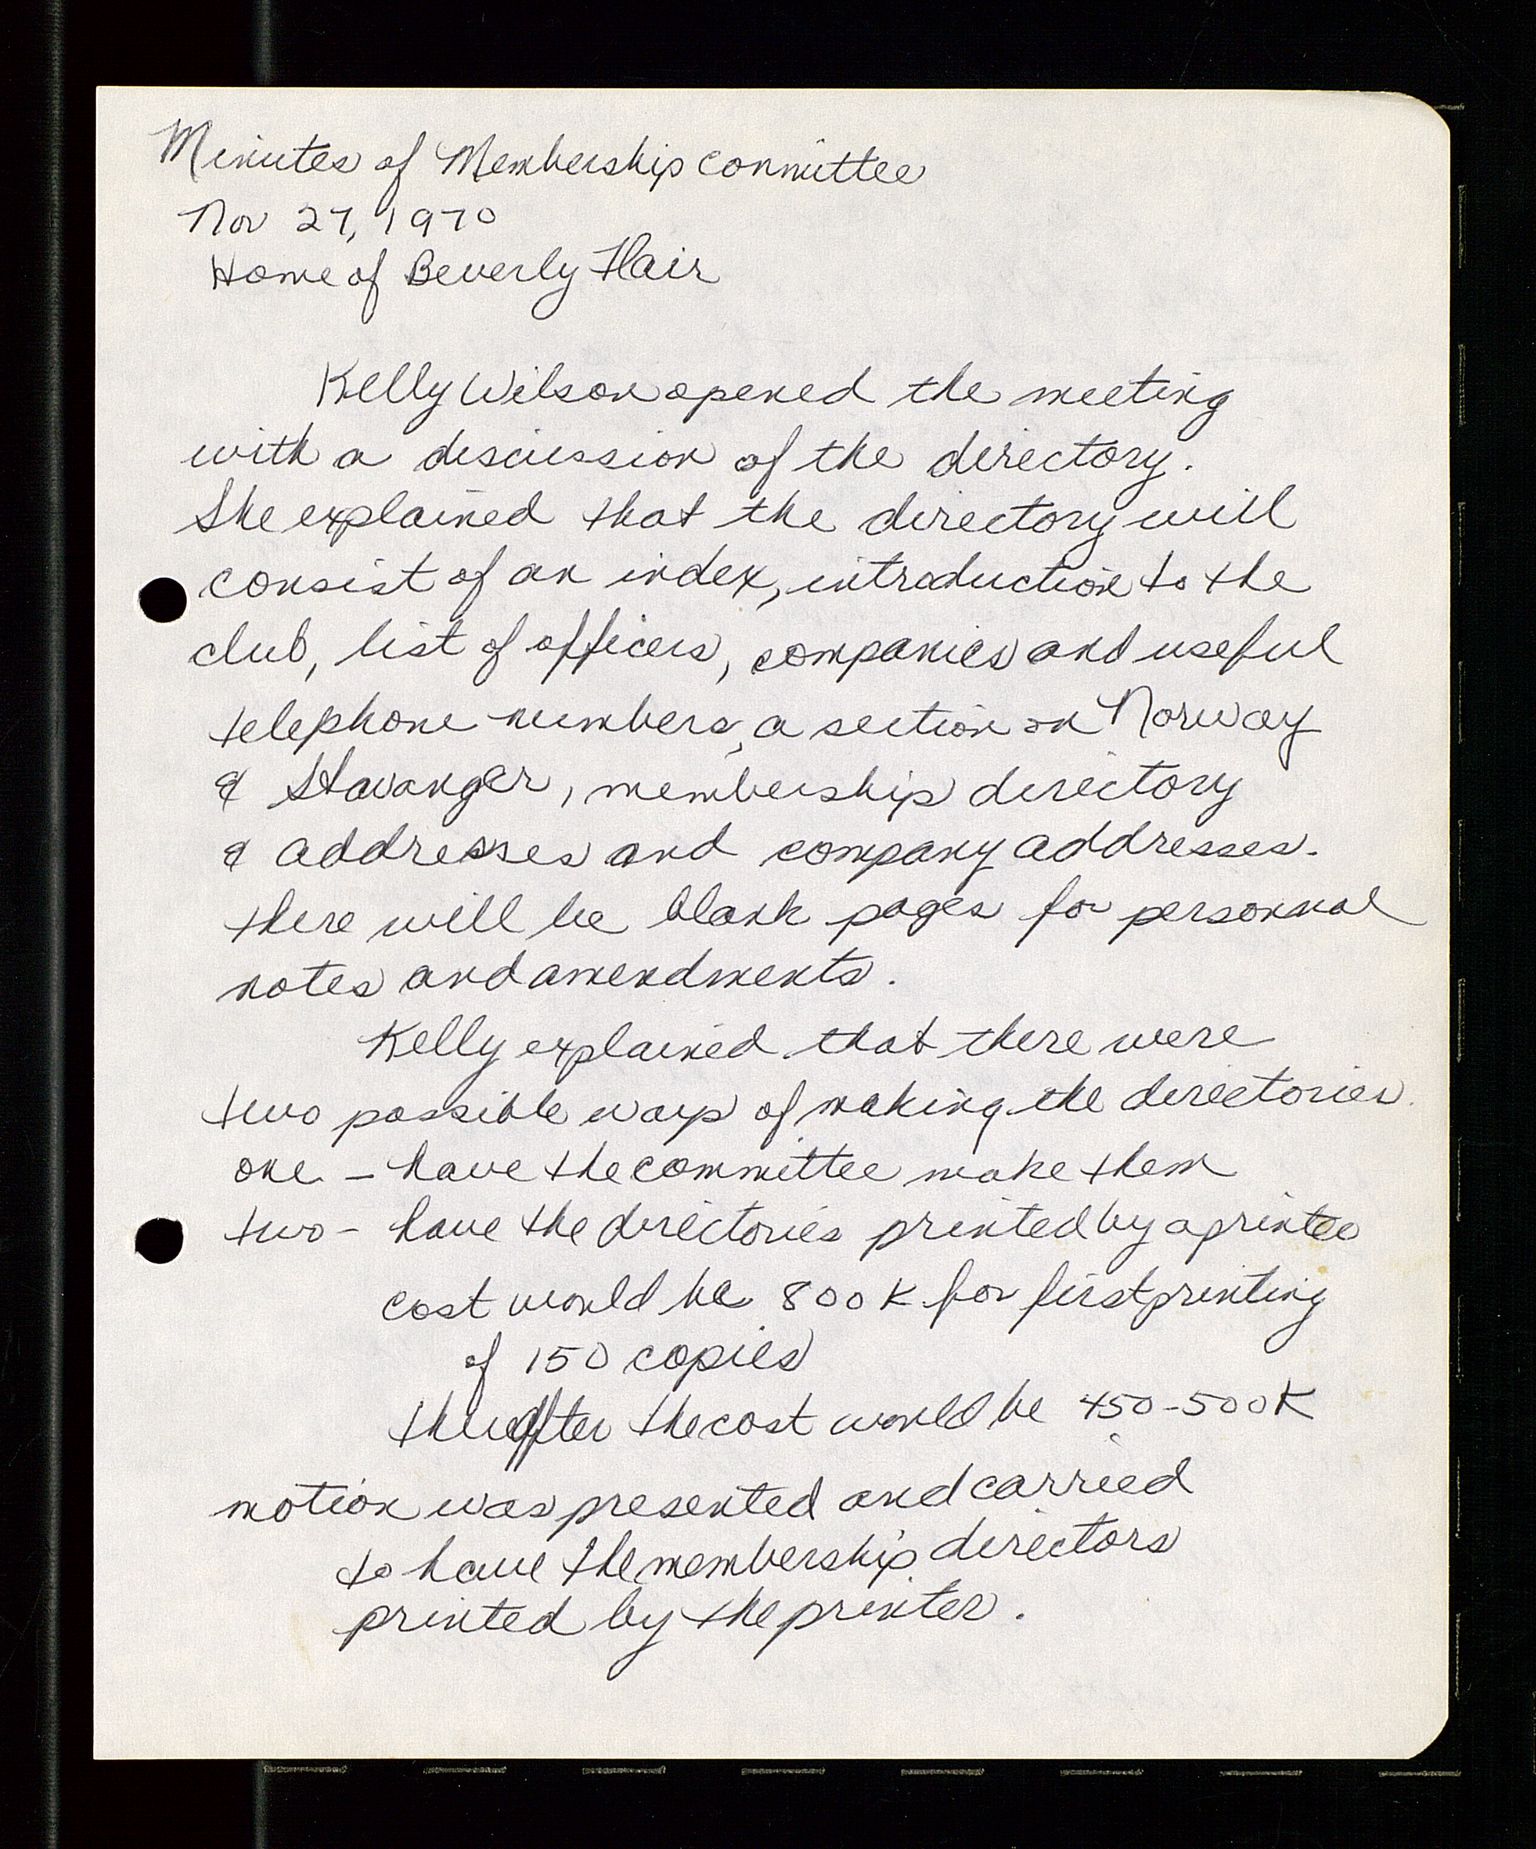 Minutes of Membership committee
Nov 27, 1970
Home of Beverly Hair
Kelly Wilson opened the meeting
with a discussion of the directory.
She explained that the directory will
consist of an index, introduction to the
club, list of officers, companies and useful
telephone numbers, a section on Norway
& Stavanger, membership directory
& addresses and company addresses.
there will be blank pages for personnal
notes and amendments.
Kelly explained that there were
two possible ways of making the directories.
one - have the committee make them
two - have the directories printed by a printer
cost would be 800 K for first printing
of 150 copies
thereafter the cost would be 450-500K
motion was presented and carried
to have the membership directors
printed by the printer.